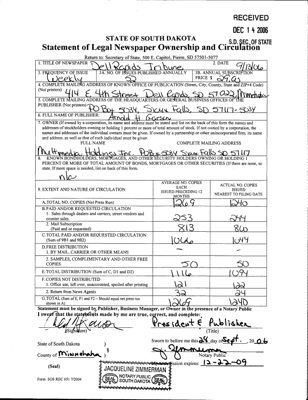 RECEIVED
DEC 14 2006
S.D. SEC. OF STATE
STATE OF SOUTH DAKOTA
Statement of Legal Newspaper Ownership and Circulation
Return to: Secretary of State, 500 E. Capitol, Pierre, SD 57501-5077
1. TITLE OF NEWSPAPER Dell Rapids Tribune
2. DATE
3. FREQUENCY OF ISSUE Weekly
3A. NO. OF ISSUES PUBLISHED ANNUALLY 52
3B. ANNUAL SUBSCRIPTION PRICE $
4. COMPLETE MAILING ADDRESS OF KNOWN OFFICE OF PUBLICATION (Street, City, County, State and ZIP+4 Code) (Not printers)
E. 4th Street Dell Rapids SD 57022 Minnehaha
5. COMPLETE MAILING ADDRESS OF THE HEADQUARTERS OR GENERAL BUSINESS OFFICES OF THE PUBLISHER (Not printers)
PO Box 5034, Sioux Falls, SD 57117-5034
6. FULL NAME OF PUBLISHER: Arnold H Garson
7. OWNER (If owned by a corporation, its name and address must be stated and list on the back of this form the names and addresses of stockholders owning or holding 1 percent or more of total amount of stock. If not owned by a corporation, the names and addresses of the individual owners must be given. If owned by a partnership or other unincorporated firm, its name and address, as well as that of each individual must be given.)
FULL NAME
COMPLETE MAILING ADDRESS
Multimedia Holdings Inc. PO Box 5034 Sioux Falls SD 57117
8. KNOWN BONDHOLDERS, MORTGAGEES, AND OTHER SECURITY HOLDERS OWNING OR HOLDING 1 PERCENT OR MORE OF TOTAL AMOUNT OF BONDS, MORTGAGES OR OTHER SECURITIES (If there are none, so state. If more space is needed, list on back of this form.
9. EXTENT AND NATURE OF CIRCULATION
AVERAGE NO. COPIES EACH ISSUED PRECEDING 12 MONTHS
ACTUAL NO. COPIES ISSUED NEAREST TO FILING DATE
A. TOTAL NO. COPIES (Net Press Run) 1269 1240
B. PAID AND/OR REQUESTED CIRCULATION
1. Sales through dealers and carriers, street vendors and counter sales. 253 244
2. Mail Subscription (Paid and or requested) 813 800
C. TOTAL PAID AND/OR REQUESTED CIRCULATION (Sum of 9B1 and 9B2) 1066 1044
D. FREE DISTRIBUTION
1. BY MAIL, CARRIER OR OTHER MEANS
2. SAMPLES, COMPLIMENTARY AND OTHER FREE COPIES 50 50
E. TOTAL DISTRIBUTION (Sum of C, D1 and D2) 1116 1094
F. COPIES NOT DISTRIBUTED
1. Office use, left over, unaccounted, spoiled after printing 121 122
2. Return from News Agents 32 24
G. TOTAL (Sum of E, F1 and F2 - Should equal net press run shown in A) 1269 1240
Statement must be signed by Publisher, Business Manager, or Owner in the presence of a Notary Public
I swear that the statements made by me are true, correct, and complete:
President & Publisher
(Title)
State of South Dakota )
County of Minnehaha )
Sworn to before me this 28 day of Sept. 2006
Notary Public
(Seal)
expires: 12-22-09
JACQUELINE ZIMMERMAN
NOTARY PUBLIC
SOUTH DAKOTA
Form: SOS REC 051 7/2004